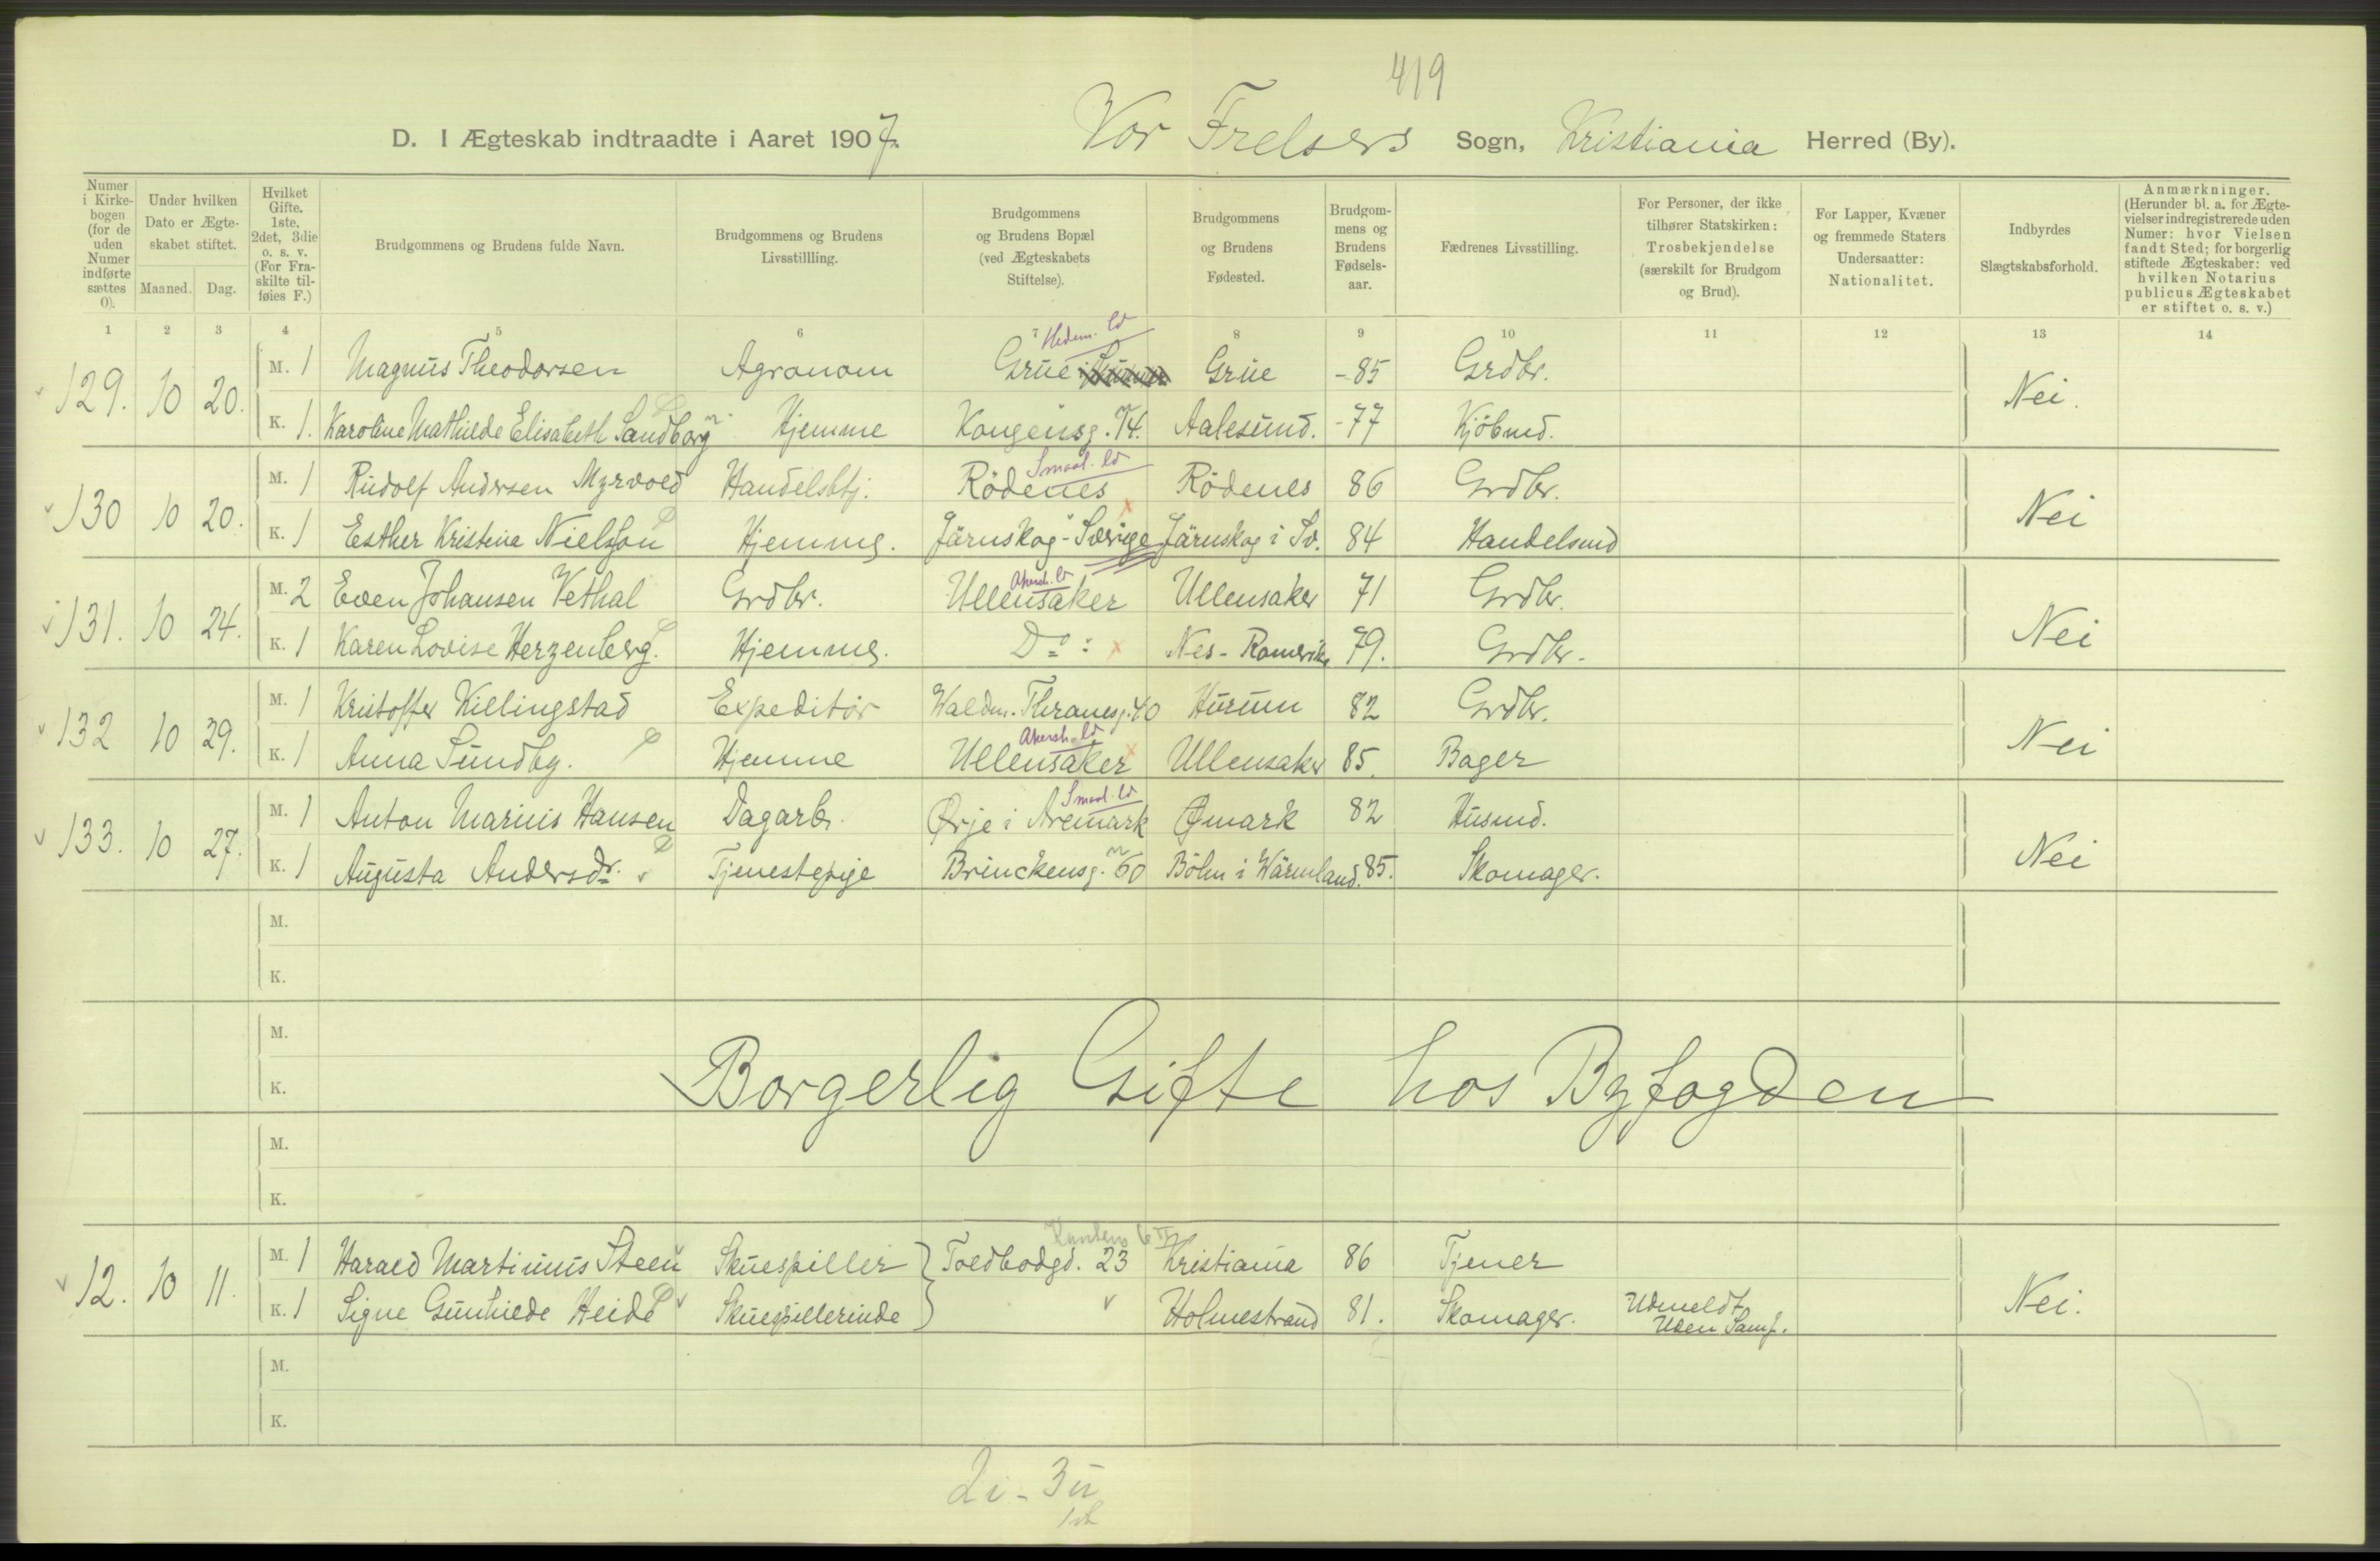 419
D. I Ægteskab indtraadte i Aaret 1907. Vor Frelsers Sogn, Kristiania Herred (By).
Numer i Kirke-bogen (for de uden Numer indførte sættes 0).
Under hvilken Dato er Ægte-skabet stiftet.
Maaned. Dag.
Hvilket Gifte. 1ste, 2det, 3die o. s. v. (For Fra-skilte til-føies F.)
Brudgommens og Brudens fulde Navn.
Brudgommens og Brudens Livsstillling.
Brudgommens og Brudens Bopæl (ved Ægteskabets Stiftelse).
Brudgommens og Brudens Fødested.
Brudgom-mens og Brudens Fødsels-aar.
Fædrenes Livsstilling.
For Personer, der ikke tilhører Statskirken: Trosbekjendelse (særskilt for Brudgom og Brud).
For Lapper, Kvæner og fremmede Staters Undersaatter: Nationalitet.
Indbyrdes Slægtskabsforhold.
Anmærkninger. (Herunder bl. a. for Ægte-vielser indregistrerede uden Numer: hvor Vielsen fandt Sted; for borgerlig stiftede Ægteskaber: ved hvilken Notarius publicus Ægteskabet er stiftet o. s. v.)
1 2 3 4 5 6 7 8 9 10 11 12 13 14
Hedem.
129. 10 20. M. 1 Magnus Theodorsen Agronom Grue Grue -85 Grdbr. Nei.
K. 1. Karoline Mathilde Elisabeth Sandborg Hjemme Kongensg. 14. Aalesund. -77 Kjöbmd.
Smaal.
130 10 20. M. 1 Rudolf Andersen Myrvold Handelsbtj. Rödenes Rödenes 86 Grdbr. Nei
K. 1 Esther Kristine Nielsson Hjemme. Järnskog - Sverige Järnskog i Sv. 84 Handelsmd
Akersh.
131. 10 24. M. 2 Even Johansen Vethal Grdbr. Ullensaker Ullensaker 71 Grdbr. Nei
K. 1 Karen Lovise Herzenberg. Hjemme. Do: Nes - Romerike 79. Grdbr.
132 10 29. M. 1 Kristoffer Killingstad Expeditör Waldm. Thranesg. 40 Hurum 82 Grdbr. Nei
Akersh.
K. 1 Anna Sundby. Hjemme Ullensaker Ullensaker 85. Bager
Smaal.
133. 10 27. M. 1 Anton Marius Hansen Dagarb. Ørje i Aremark Ømark 82 Husmd. Nei
K. 1 Augusta Andersdr. Tjenestepige Brinckensg. 60 Bölm i Wärmland. 85. Skomager.
M.
K.
M.
K. Borgerlig Gifte hos Byfogden
M.
K.
12. 10 11. M. 1 Harald Martinius Steen Skuespiller Toldbodgd. 23 Kristiania 86 Tjener Nei.
K. 1 Signe Gunhilde Heide Skuespillerinde Holmestrand 81. Skomager. Udmeldt
Uden Samf.
M.
K.
2i - 3u